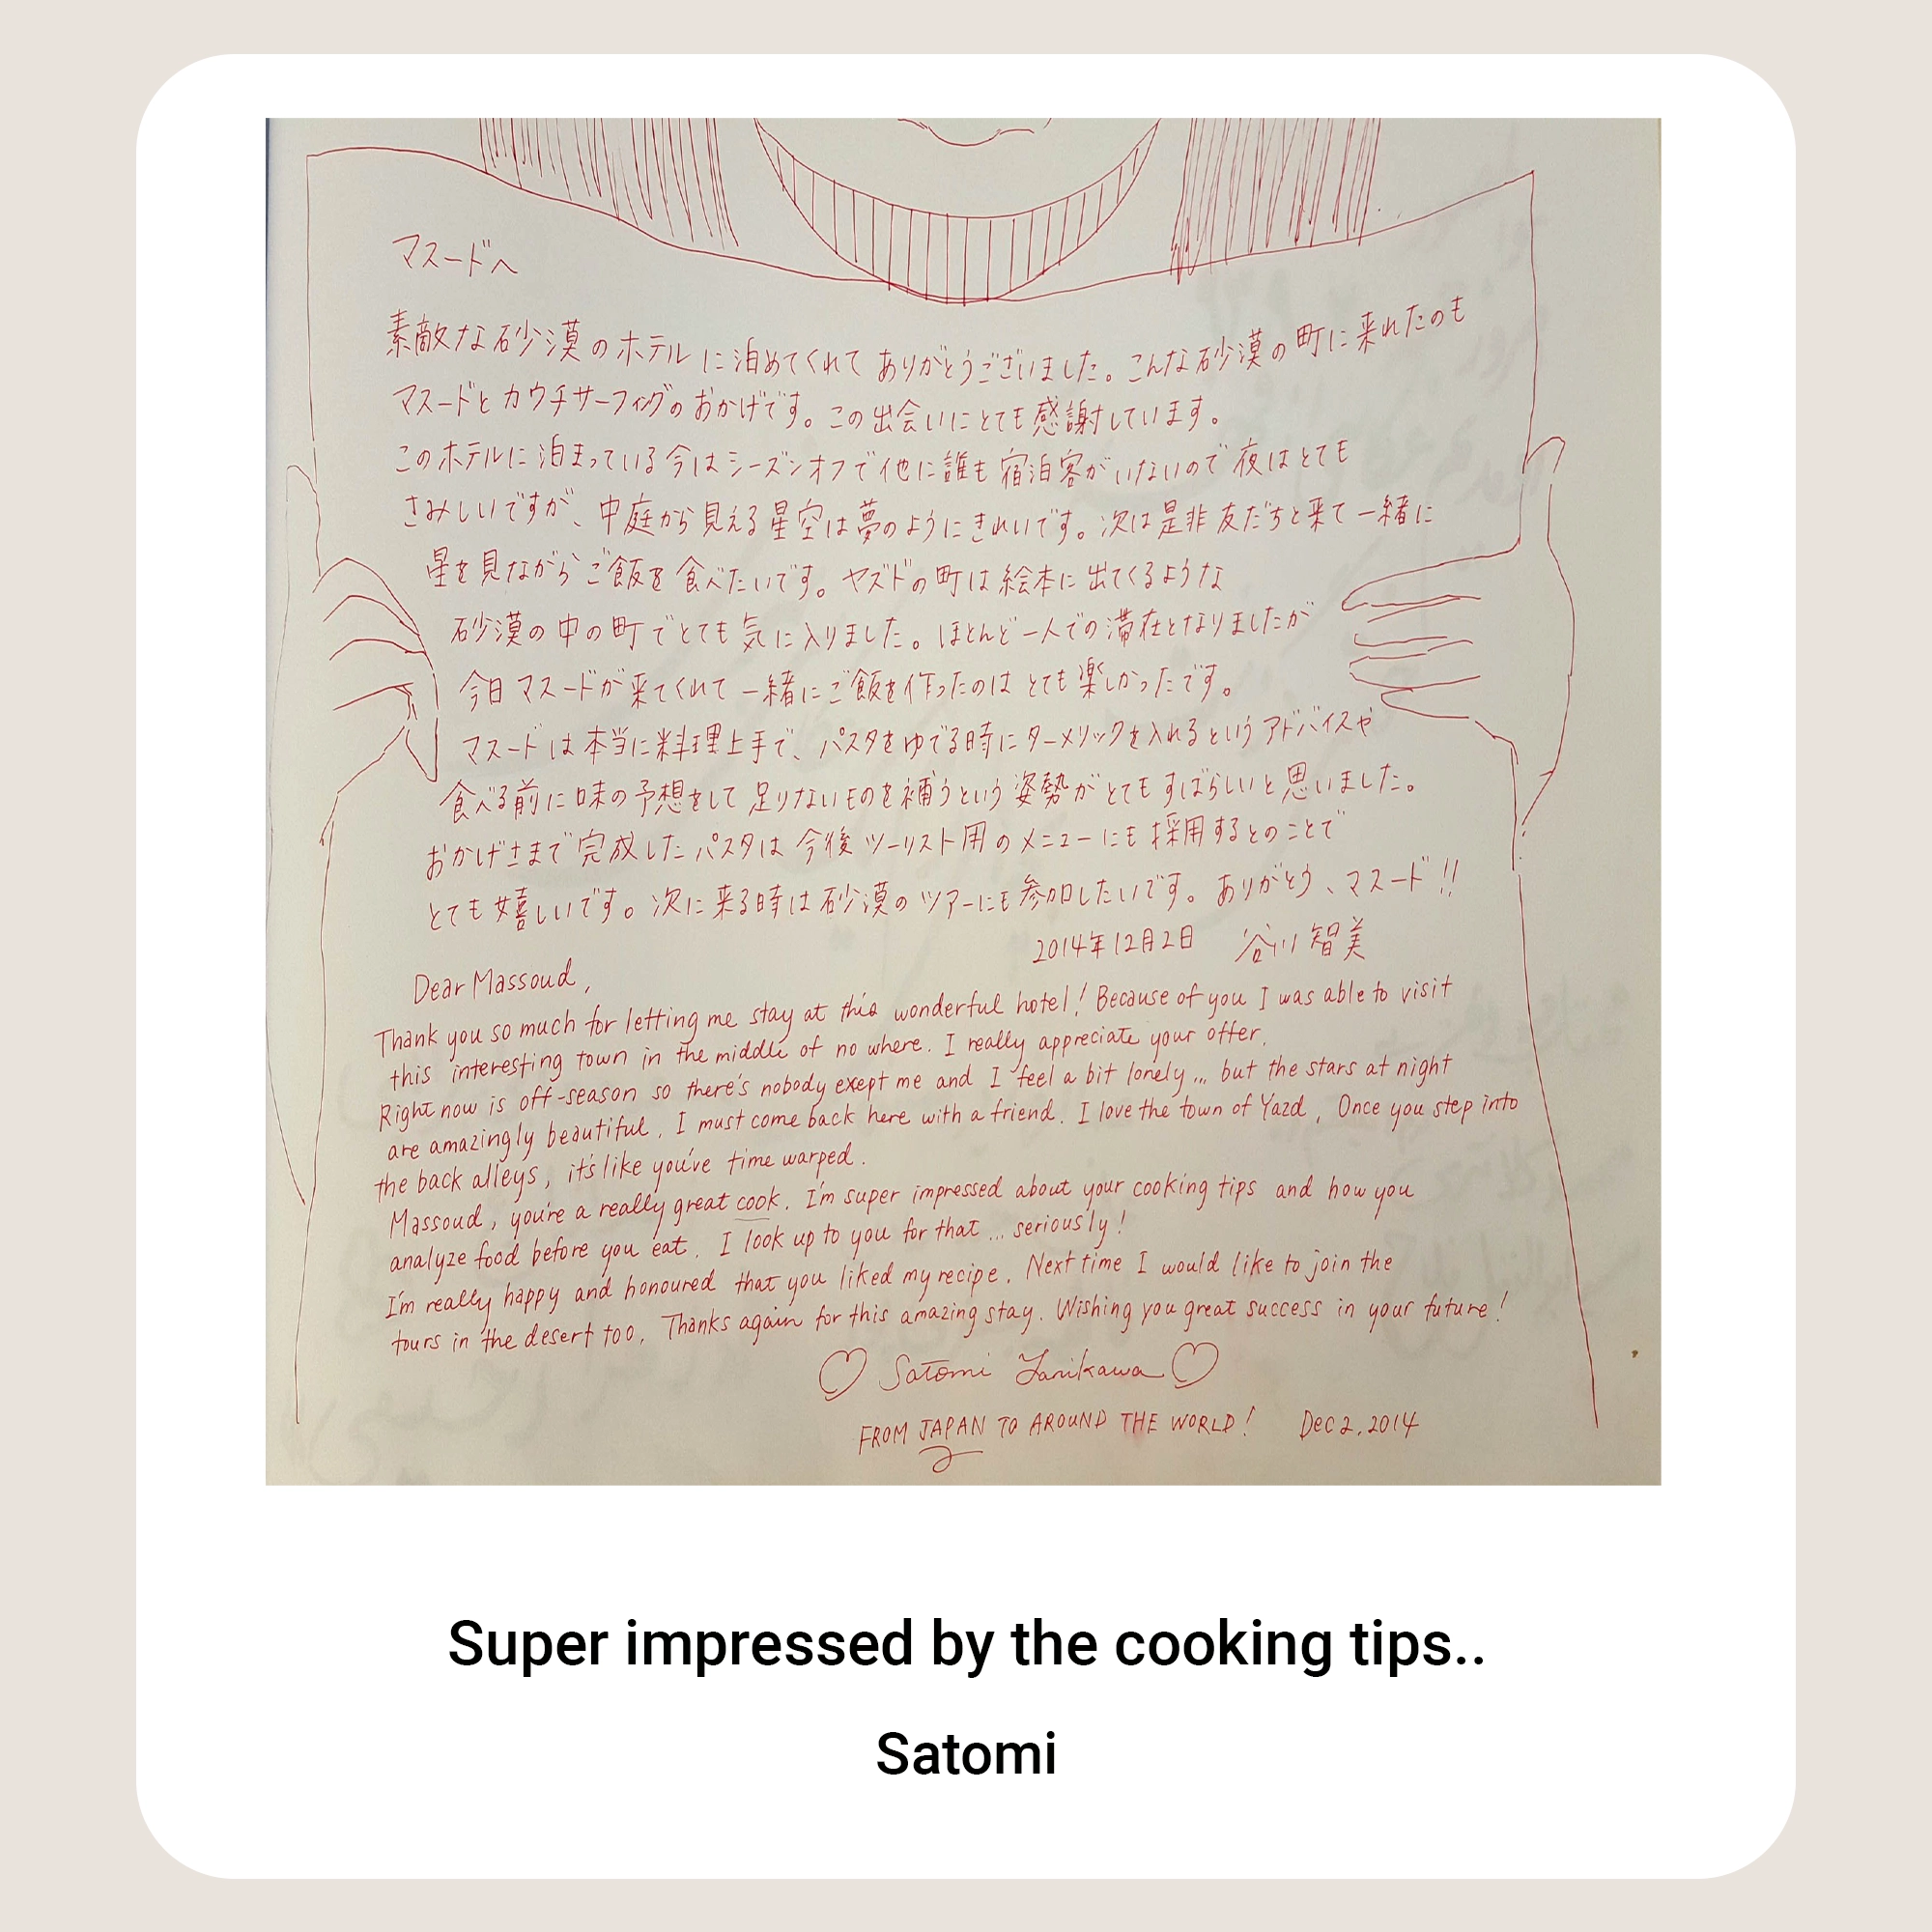 マスードへ
素敵な砂漠のホテルに泊めてくれてありがとうございました。こんな砂漠の町に来れたのも
マスードとカウチサーフィングのおかげです。この出会いにとても感謝しています。
このホテルに泊まっている今はシーズンオフで他に誰も宿泊客がいないので夜はとても
さみしいですが、中庭から見える星空は夢のようにきれいです。次は是非友だちと来て一緒に
星を見ながらご飯を食べたいです。ヤズドの町は絵本に出てくるような
砂漠の中の町でとても気に入りました。ほとんど一人での滞在となりましたが
今日マスードが来てくれて一緒にご飯を作ったのはとても楽しかったです。
マスードは本当に料理上手で、パスタをゆでる時にターメリックを入れるというアドバイスや
食べる前に味の予想をして足りないものを補うという姿勢がとてもすばらしいと思いました。
おかげさまで完成したパスタは今後ツーリスト用のメニューにも採用するとのことで
とても嬉しいです。次に来る時は砂漠のツアーにも参加したいです。ありがとう、マスード!!
2014年12月2日 谷川智美
Dear Massoud,
Thank you so much for letting me stay at this wonderful hotel! Because of you I was able to visit
this interesting town in the middle of no where. I really appreciate your offer.
Right now is off-season so there's nobody exept me and I feel a bit lonely... but the stars at night
are amazingly beautiful. I must come back here with a friend. I love the town of Yazd. Once you step into
the back alleys, it's like you've time warped.
Massoud, you're a really great cook. I'm super impressed about your cooking tips and how you
analyze food before you eat. I look up to you for that... seriously!
I'm really happy and honoured that you liked my recipe. Next time I would like to join the
tours in the desert too. Thanks again for this amazing stay. Wishing you great success in your future!
♡ Satomi Tanikawa ♡
FROM JAPAN TO AROUND THE WORLD! Dec 2, 2014
Super impressed by the cooking tips..
Satomi